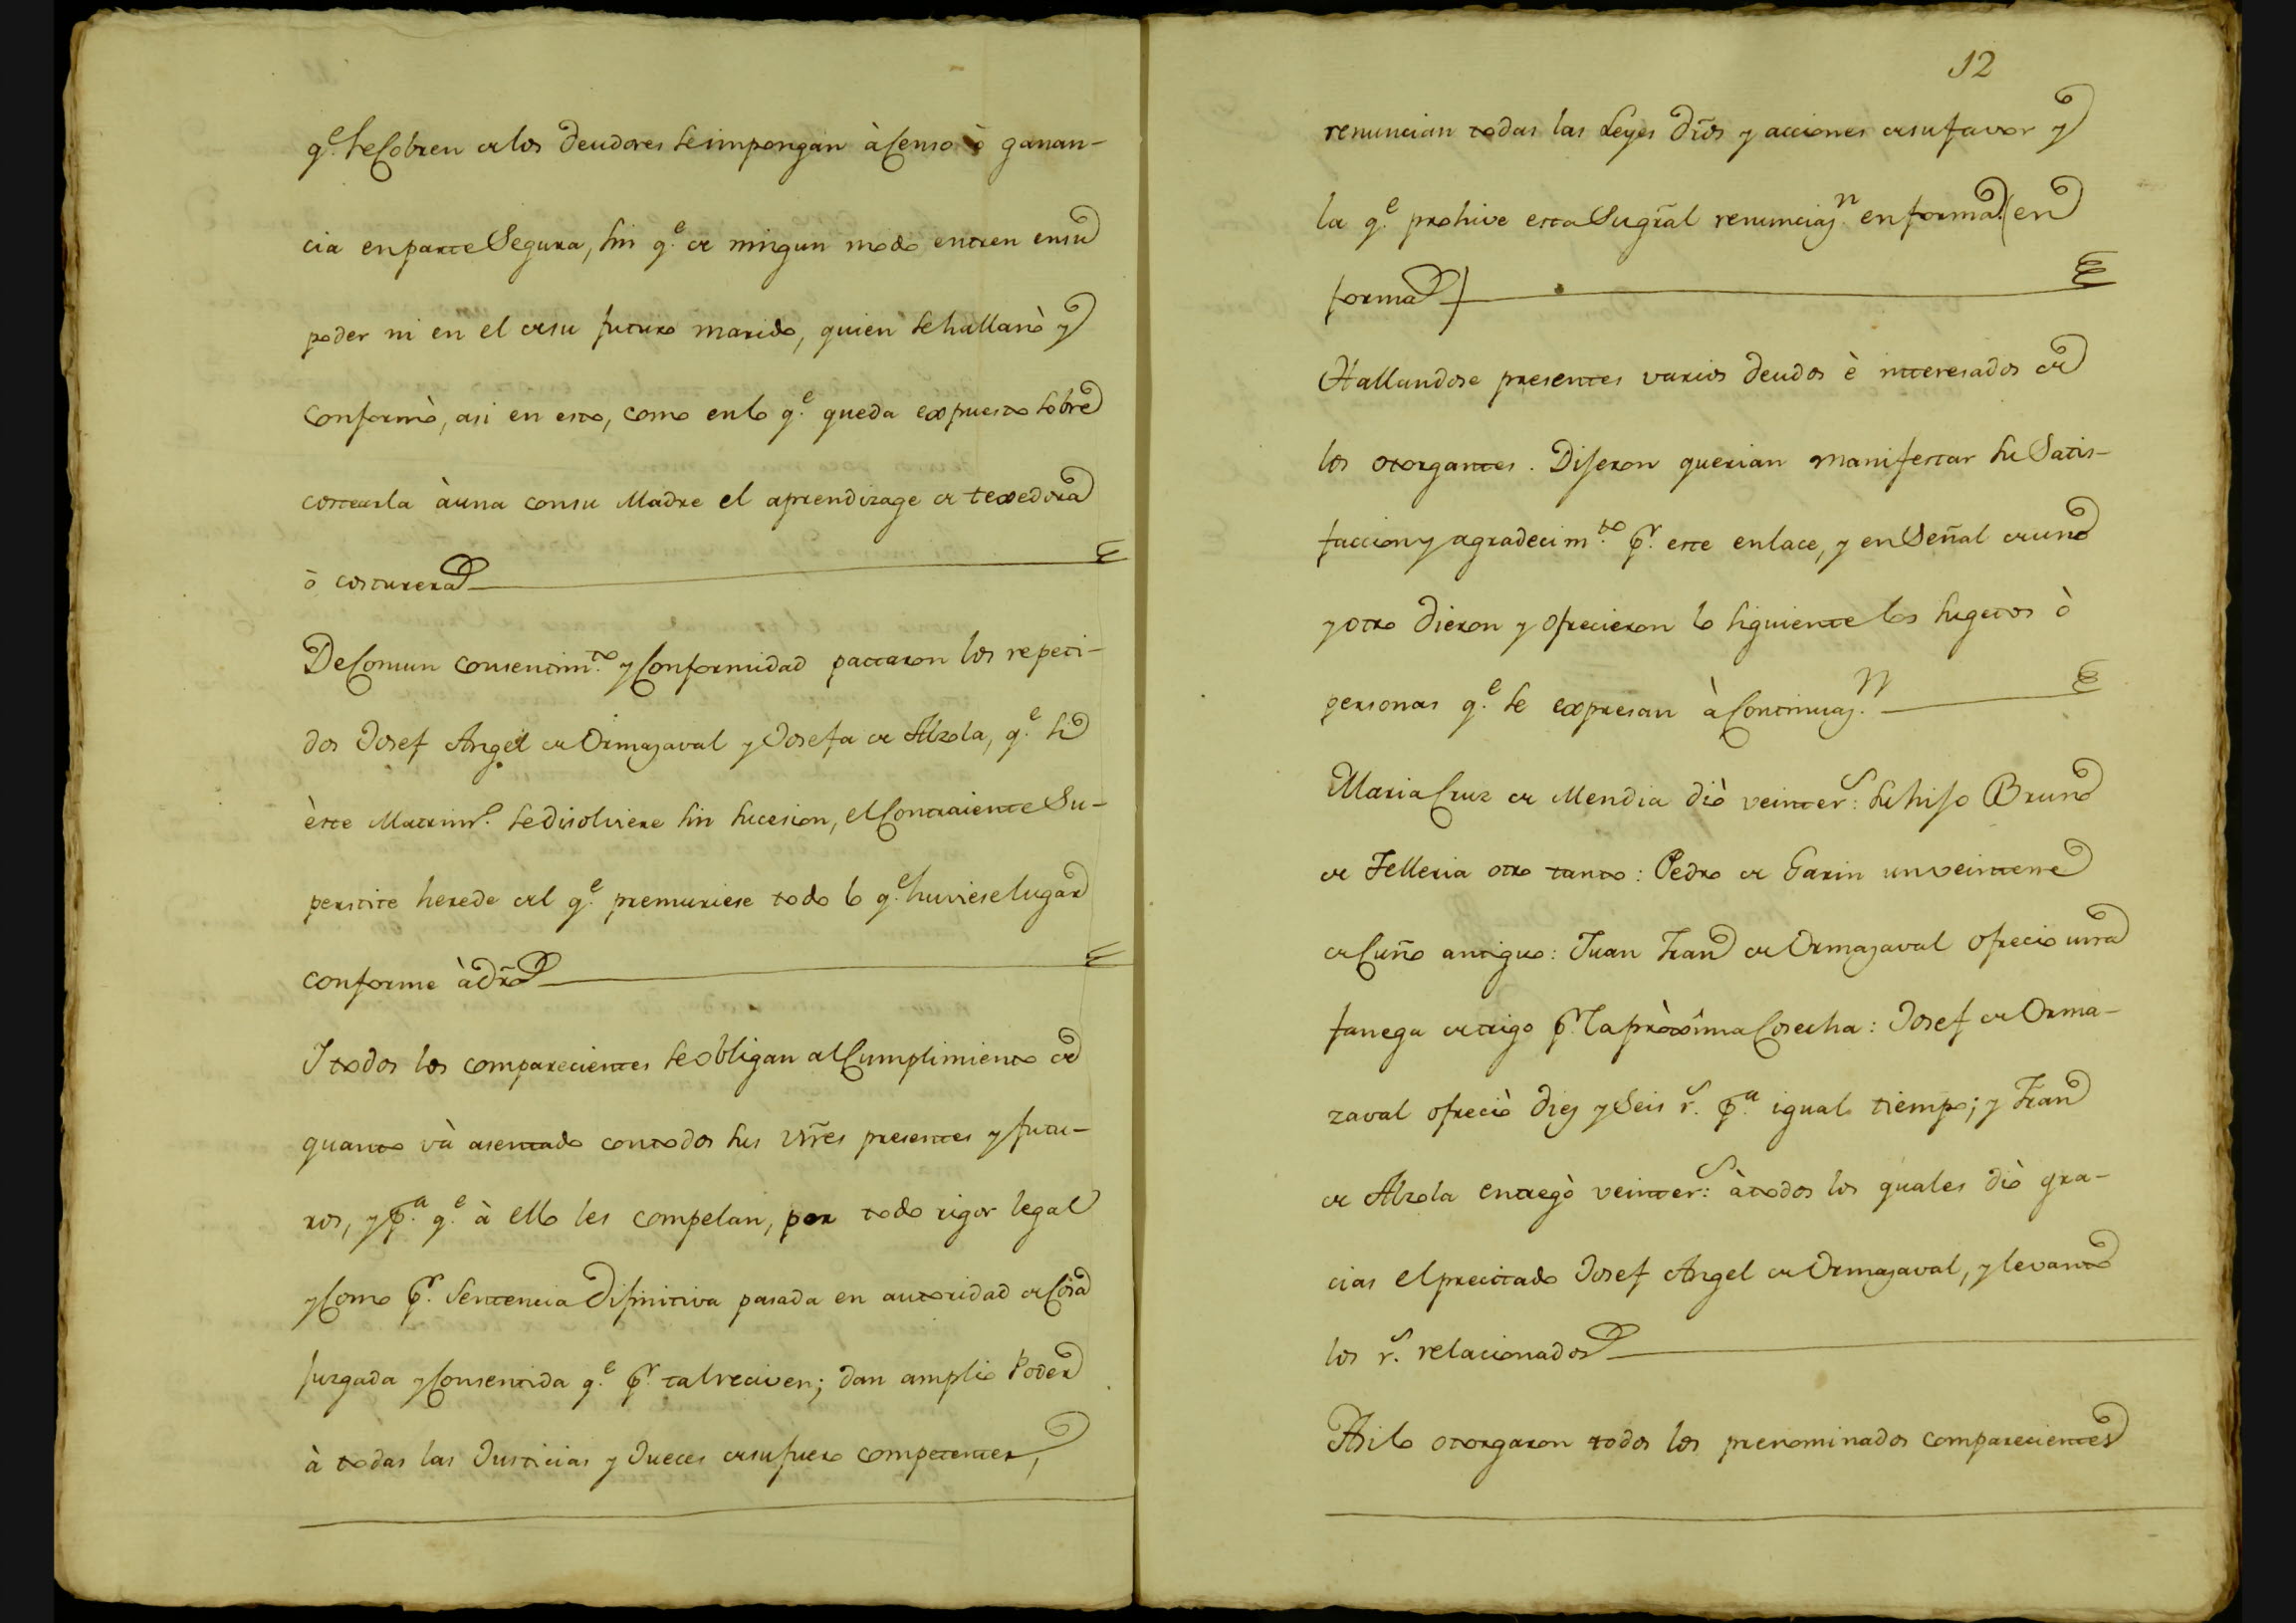 q.e se Cobren de los deudores se impongan à Censo ò ganan-
cia en parte Segura, sin q.e de ningun modo entren en su
poder ni en el de su futuro marido, quien se hallanò y
conformò, asi en esto, como en lo q.e queda expuesto sobre
costearla à una con su Madre el aprendizage de texedora
ò costurera
De Comun consentim.to y Conformidad pactaron los repeti-
dos Josef Angel de Ormazaval y Josefa de Alzola, q.e si
èste Matrim.o se disolviere sin sucesion, el Contraiente Su-
perstite herede del q.e premuriese todo lo q.e huviese lugar
conforme à dro
I todos los comparecientes se obligan al Cumplimiento de
quanto và asentado con todos sus vnes presentes y futu-
ros, y p.a q.e à ello les compelan, por todo rigor legal
y Como p.r Sentencia Difinitiva pasada en autoridad de Cosa
juzgada y Consentida q.e p.r tal reciven; dan amplio Poder
à todas las Justicias y Jueces de su fuero competentes,
12
renuncian todas las Leyes dros y acciones de su favor y
la q.e prohive esta Su gral renunciaz.n en forma. (en
forma)
Hallandose presentes varios deudos è interesados de
los otorgantes. Dijeron querian manifestar su Satis-
faccion y agradecim.to p.r este enlace, y en Señal de uno
y otro dieron y ofrecieron lo siguiente los sugetos ò
personas q.e se expresan à Continuaz.n
Maria Cruz de Mendia diò veinte r.s: su hijo Bruno
de Telleria otro tanto: Pedro de Garin un veinten
de Cuño antiguo: Juan Fran de Ormazaval ofrecio una
fanega de trigo p.a la pròxîma Cosecha: Josef de Orma-
zaval ofreciò diez y Seis r.s p.a igual tiempo; y Fran
de Alzola entregò veinte r.s: à todos los quales diò gra-
cias el precitado Josef Angel de Ormazaval, y levantò
los r.s relacionados
Asi lo otorgaron todos los prenominados comparecientes